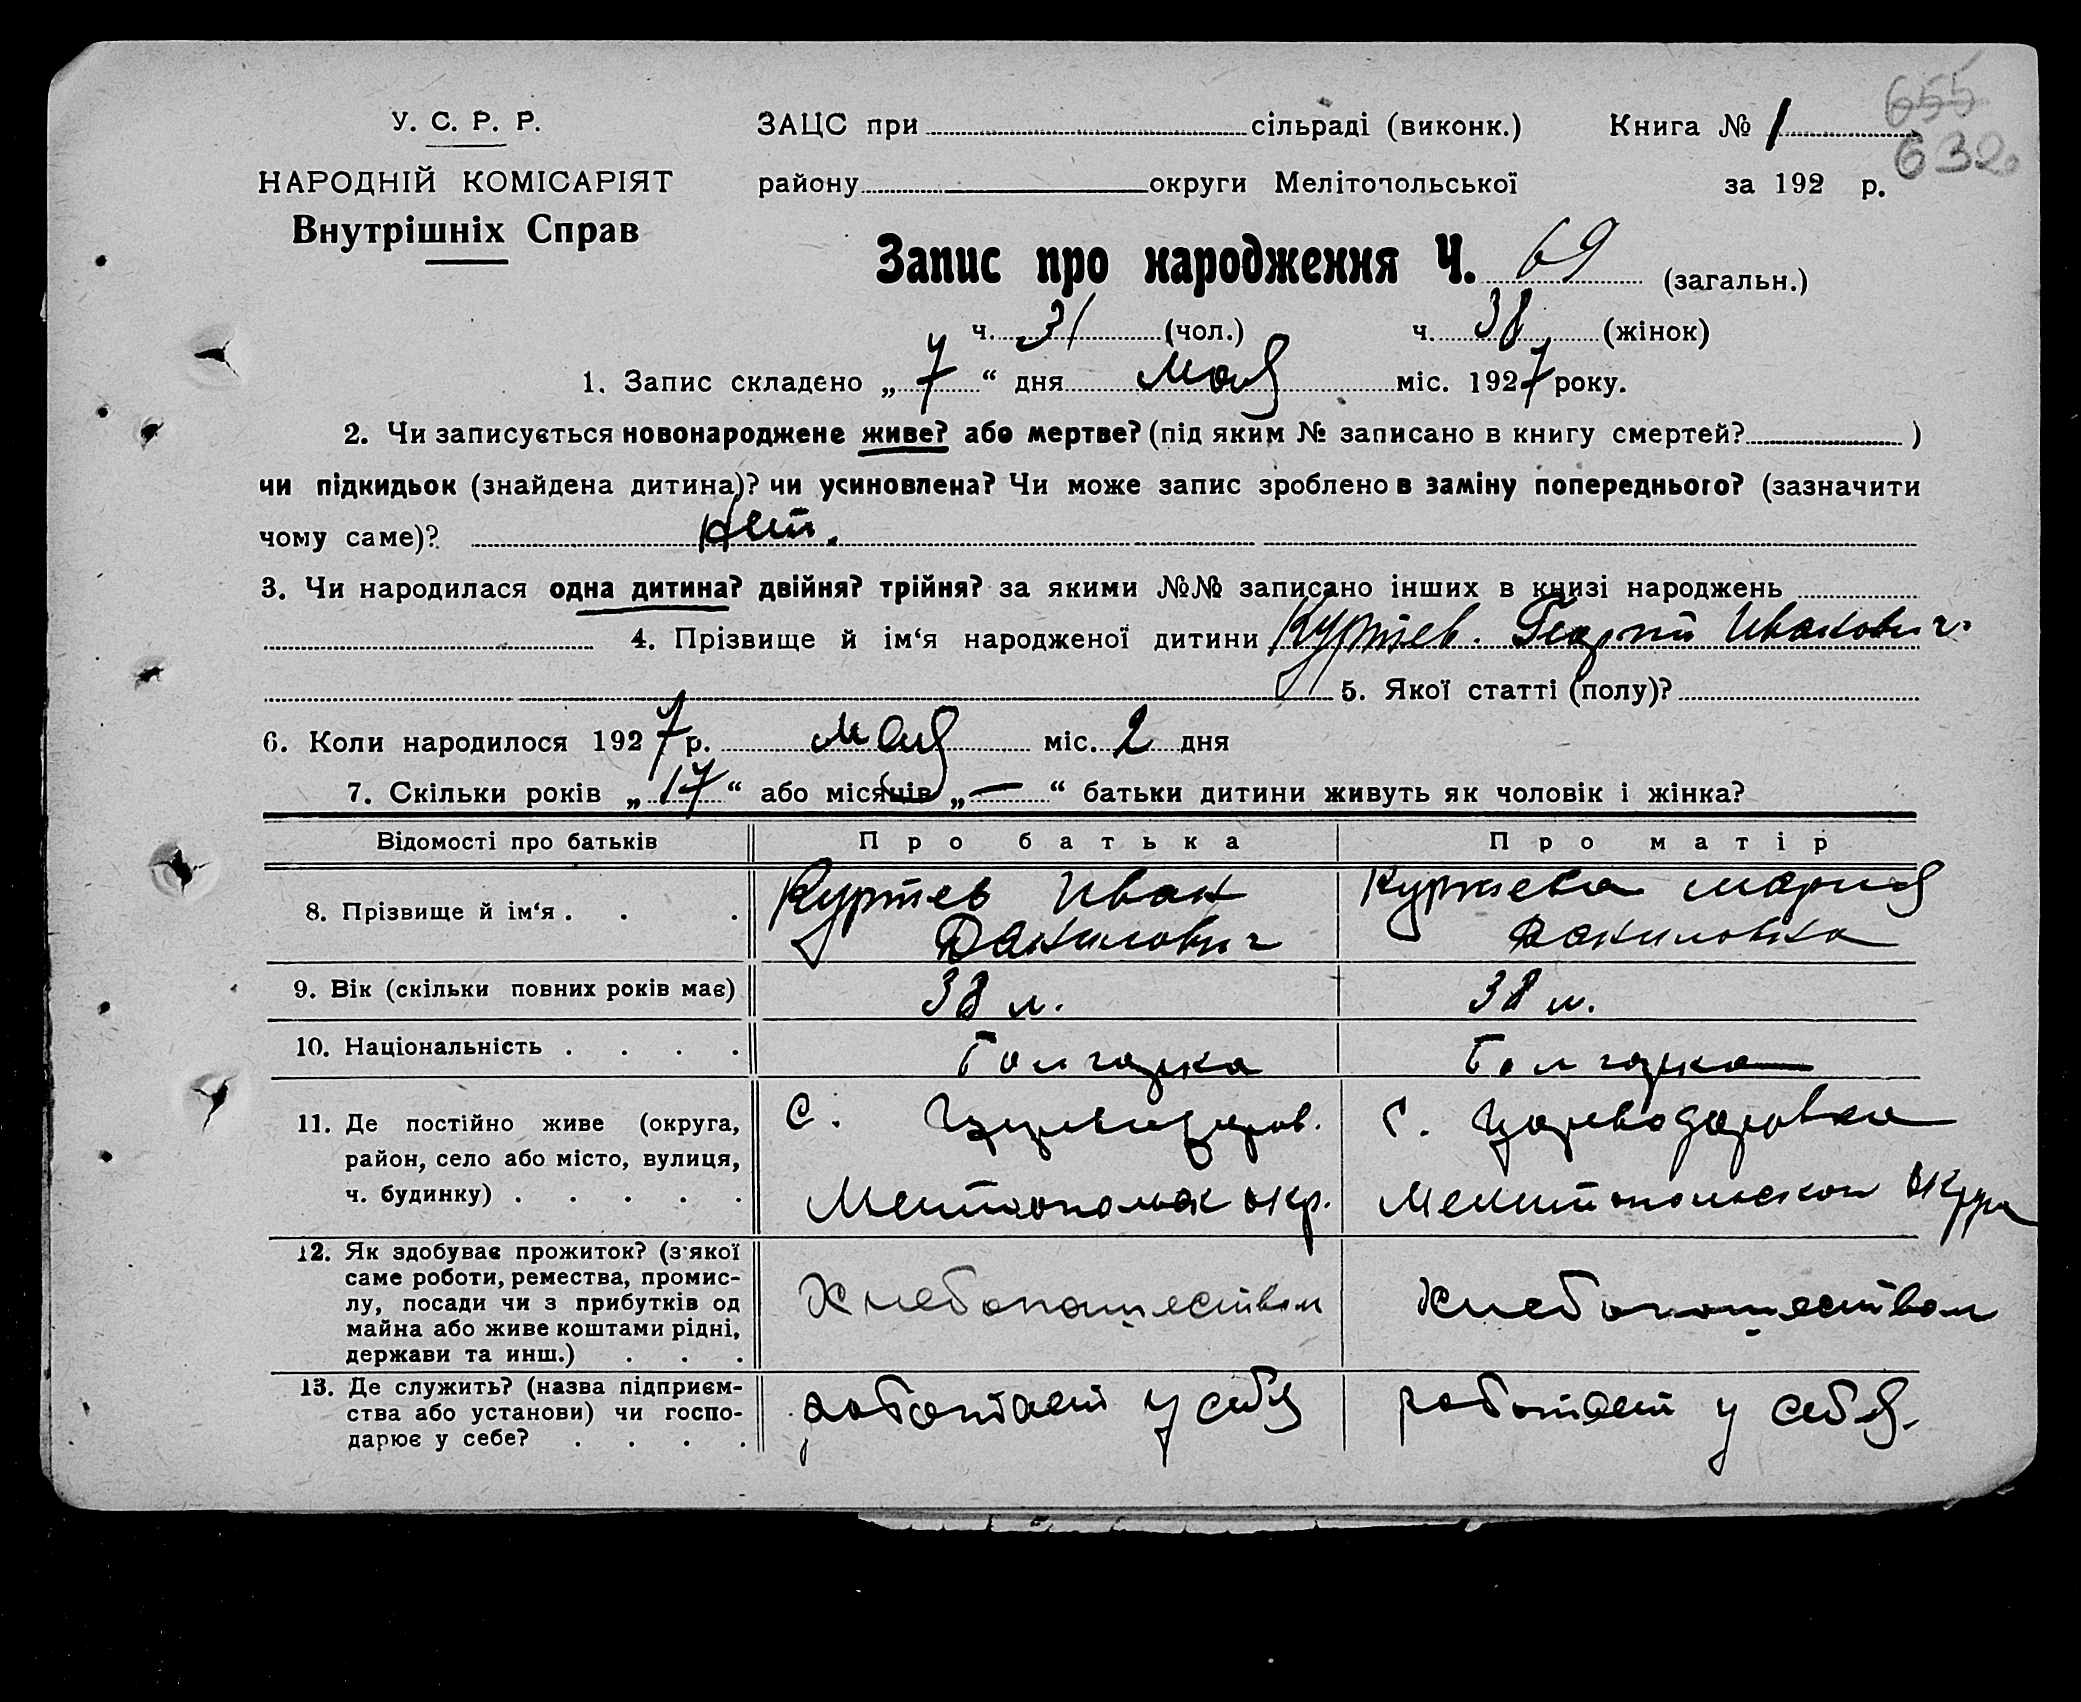 655
632
У. С. Р. Р.
НАРОДНІЙ КОМІСАРІЯТ
Внутрішніх Справ
ЗАЦС при сільраді (виконк.) Книга № 1
району округи Мелітопольської за 192 р.
Запис про народження Ч. 69 (загальн.)
ч. 31 (чол.) ч. 38 (жінок)
1. Запис складено „ 7 “ дня мая міс. 1927 року.
2. Чи записується новонароджене живе? або мертве? (під яким № записано в книгу смертей? )
чи підкидьок (знайдена дитина)? чи усиновлена? Чи може запис зроблено в заміну попереднього? (зазначити
чому саме)? нет.
3. Чи народилася одна дитина? двійня? трійня? за якими №№ записано інших в книзі народжень
4. Прізвище й ім‘я народженої дитини Куртев. Георгий Иванович.
5. Якої статті (полу)?
6. Коли народилося 1927 р. мая міс. 2 дня
7. Скільки років „ 17 “ або місяців „ — “ батьки дитини живуть як чоловік і жінка?
Відомості про батьків Про батька Про матір
8. Прізвище й ім‘я . . . Куртев Иван Куртева Мария
Данилович Даниловна
9. Вік (скільки повних років має) 38 л. 38 л.
10. Національність . . . . Болгарка Болгарка
11. Де постійно живе (округа, с. с. Цареводаровка
район, село або місто, вулиця,
ч. будинку) . . . . . окр. Мелитопольской округи
12. Як здобуває прожиток? (з‘якої
саме роботи, ремества, промис-
лу, посади чи з прибутків од Хлебопашеством Хлебопашеством
майна або живе коштами рідні,
держави та инш.) . . .
13. Де служить? (назва підприєм-
ства або установи) чи госпо- работает у себя работает у себя.
дарює у себе? . . . .